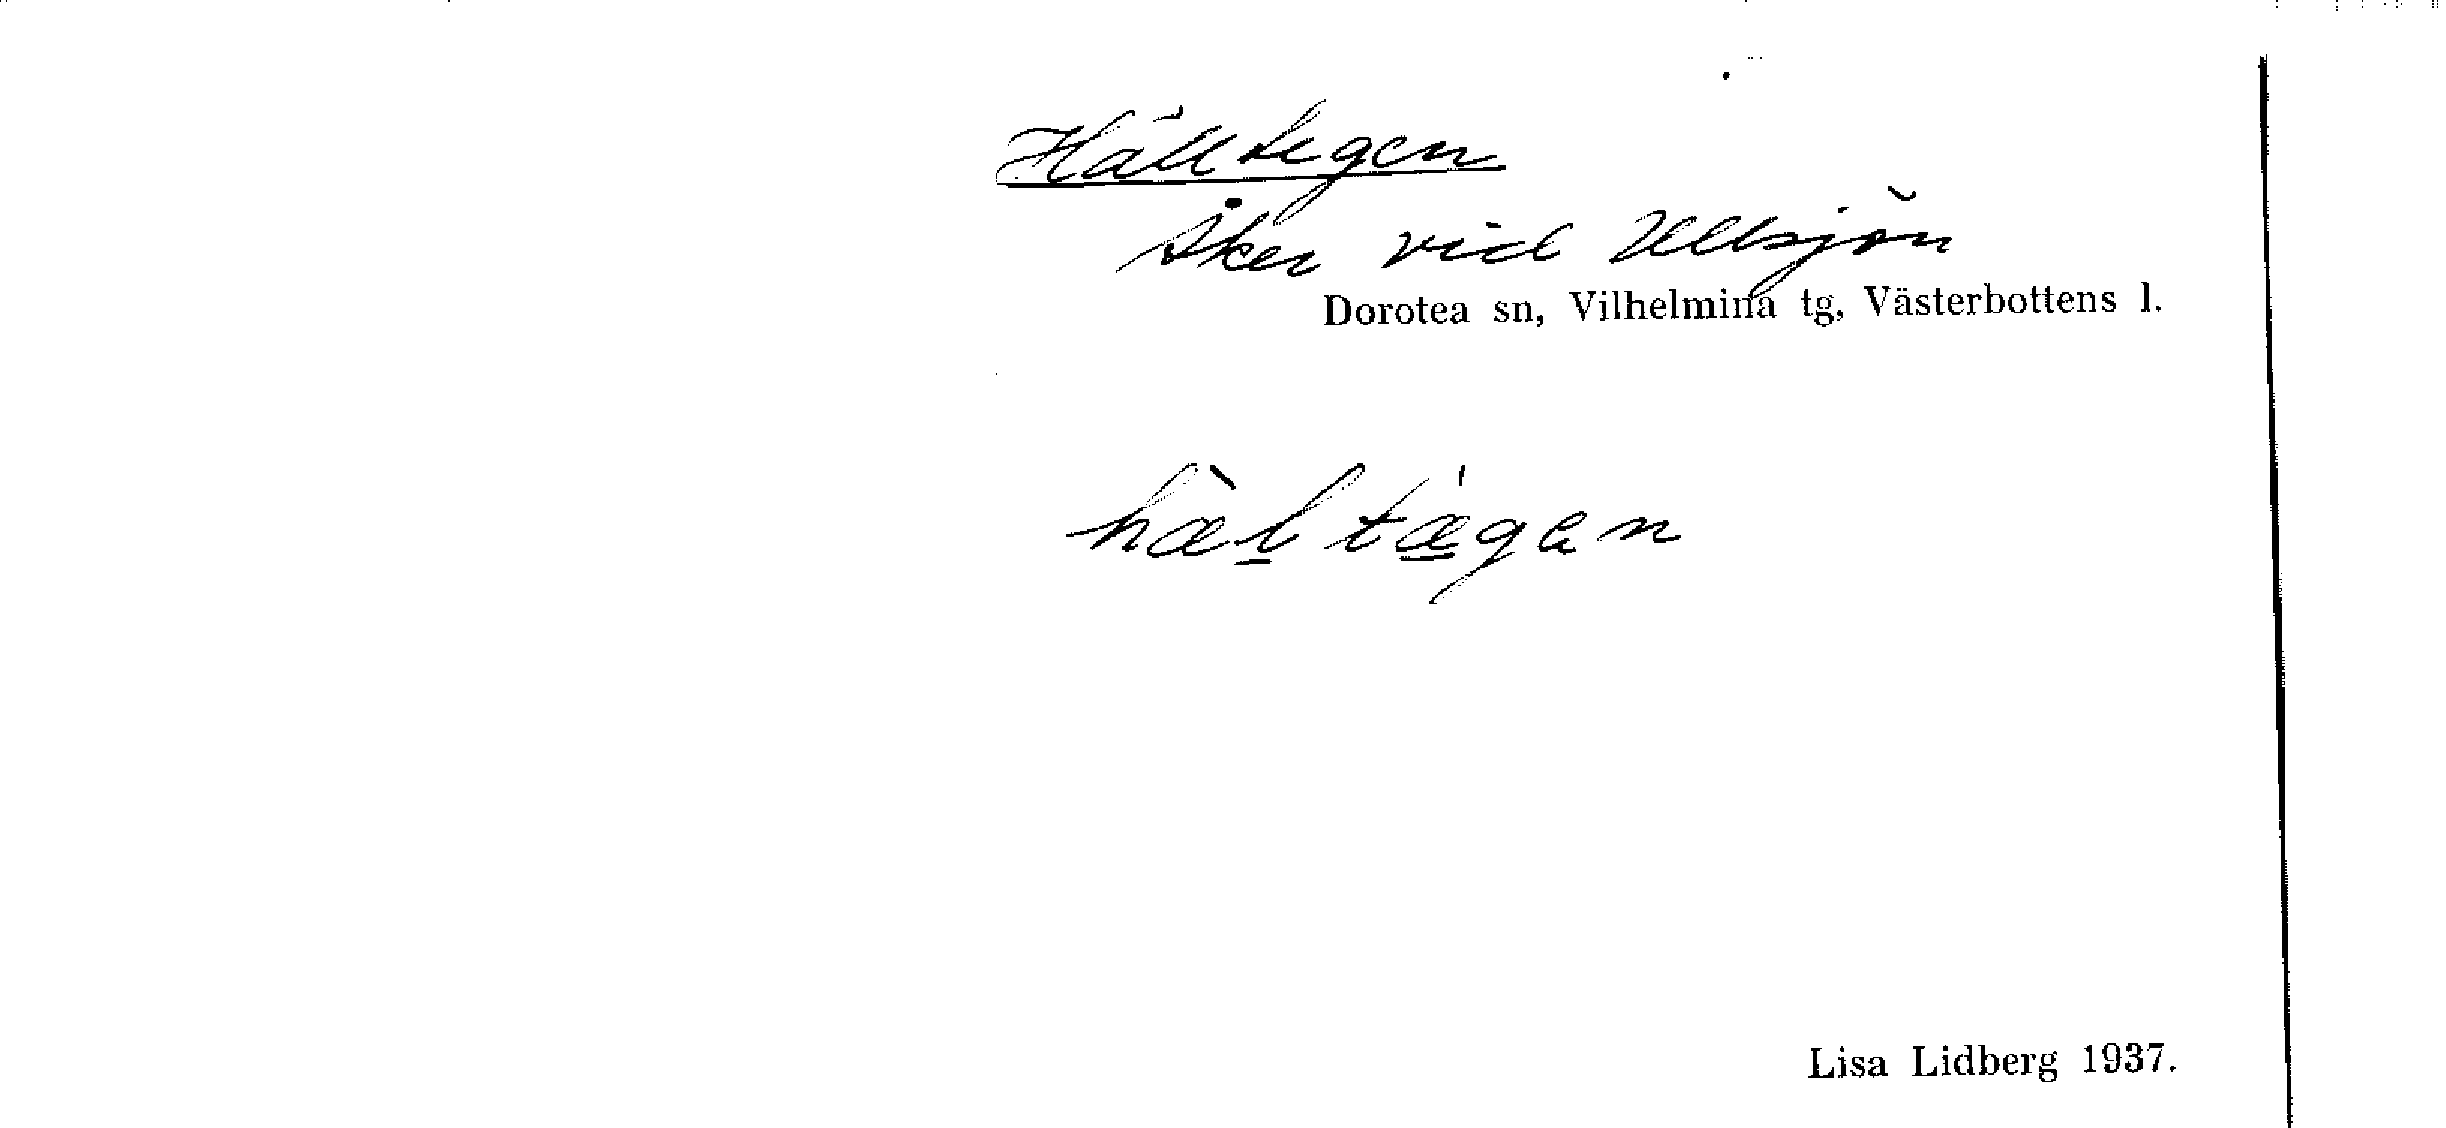 Hälltegen
Åker vid Ullsjön
Dorotea sn, Vilhelmina tg, Västerbottens l.
hæ̀l̲tæ̲̍gɐn
Lisa Lidberg 1937.